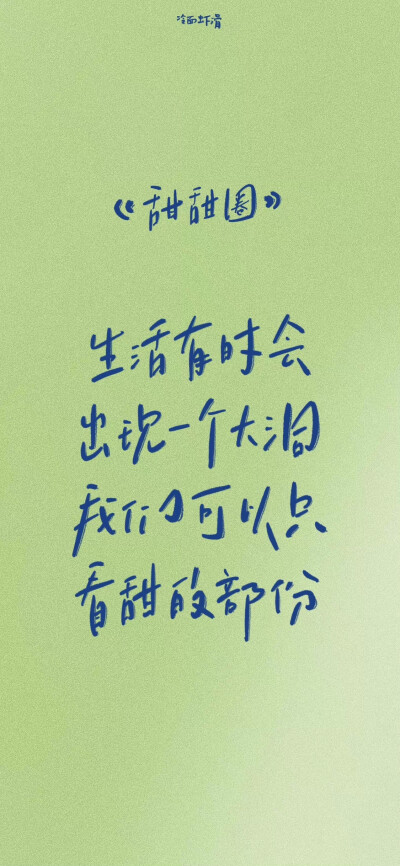 冷面虾滑
《甜甜圈》
生活有时会
出现一个大洞
我们可以只
看甜的部份